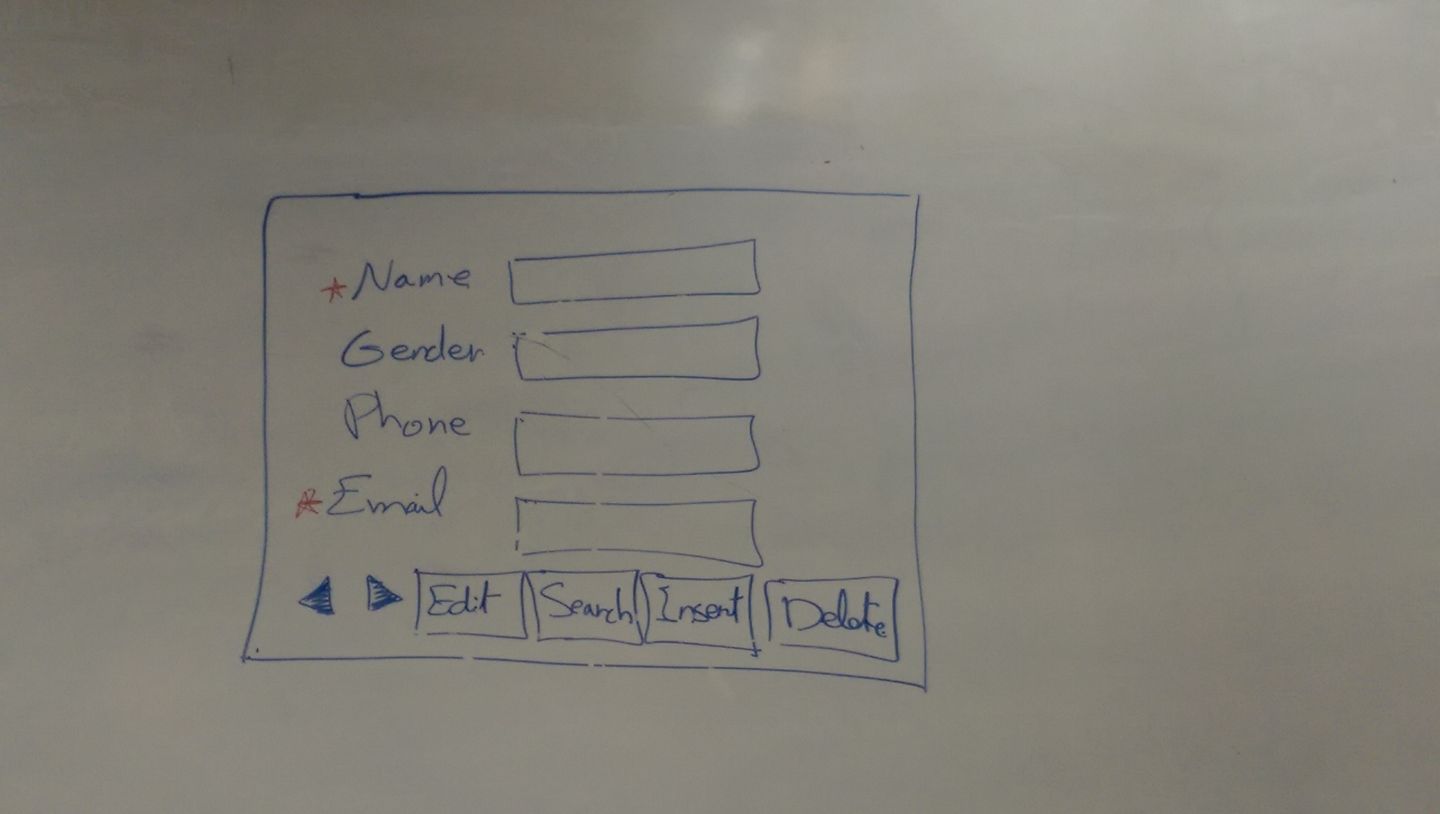 *Name
Gender
Phone
*Email
Edit Search Insert Delete